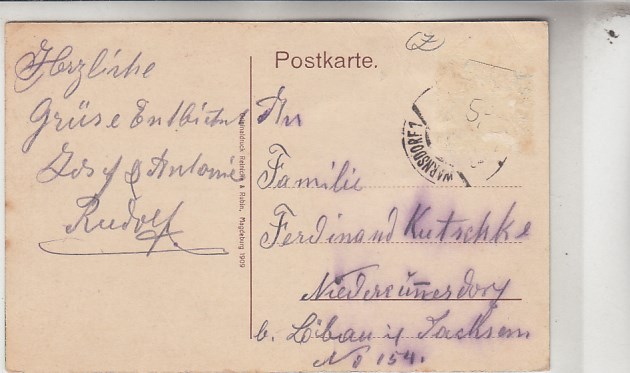 Postkarte.
Herzliche
Grüse Entbietet
Josef & Antonie
Rudolf
Originaldruck Reinicke & Rubin, Magdeburg 1909
WARNSDORF 7
An
Familie
Ferdinand Kutschke
Niedercunnersdorf
b. Löbau i/ Sachsen
No 154.